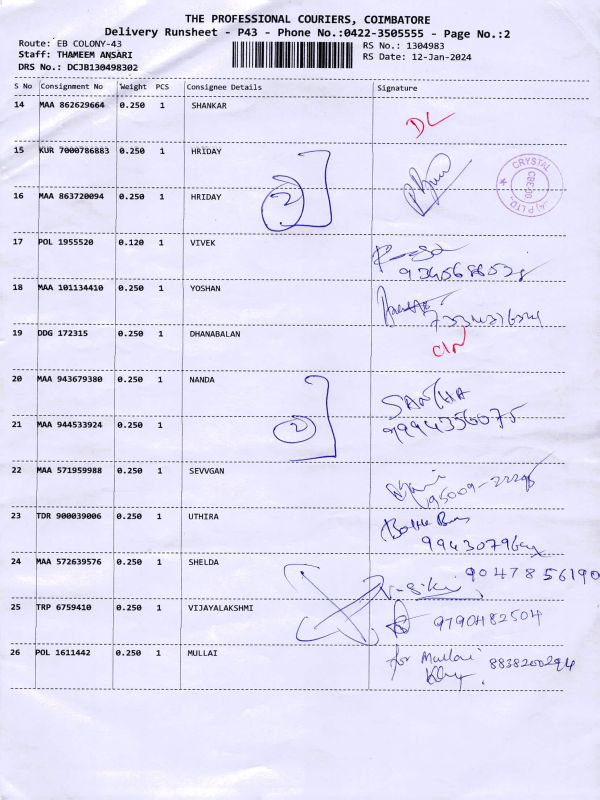 THE PROFESSIONAL COURIERS, COIMBATORE
Delivery Runsheet - P43 - Phone No.:0422-3505555 - Page No.:2
Route: EB COLONY-43 RS No.: 1304983
Staff: THAMEEM ANSARI RS Date: 12-Jan-2024
DRS No.: DCJB130498302
S No Consignment No Weight PCS Consignee Details Signature
14 MAA 862629664 0.250 1 SHANKAR
DL
15 KUR 7000786883 0.250 1 HRIDAY
CRYSTAL
16 MAA 863720094 0.250 1 HRIDAY
2
17 POL 1955520 0.120 1 VIVEK
18 MAA 101134410 0.250 1 YOSHAN
19 DDG 172315 0.250 1 DHANABALAN
20 MAA 943679380 0.250 1 NANDA
SANTHA
21 MAA 944533924 0.250 1
2 9994356075
22 MAA 571959988 0.250 1 SEVVGAN
23 TDR 900039006 0.250 1 UTHIRA
24 MAA 572639576 0.250 1 SHELDA
9047856190
25 TRP 6759410 0.250 1 VIJAYALAKSHMI
9790482504
26 POL 1611442 0.250 1 MULLAI
for Mullai